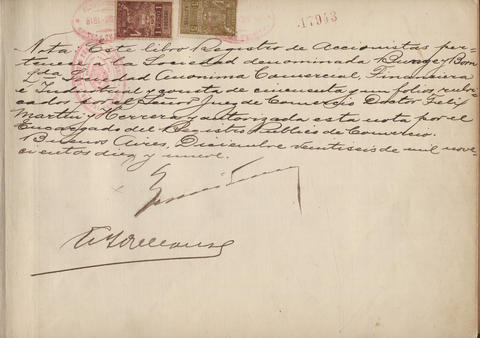 17943
Nota: Este libro Registro de Accionistas per-
tenece a la Sociedad denominada Bunge y Born
Lda Sociedad Anónima Comercial, Financiera
é Industrial y consta de cincuenta y un folios, rubri-
cados por el Señor Juez de Comercio Doctor Felix
Martin y Herrera y autorizada esta nota por el
Encargado del Registro Público de Comercio.
Buenos Aires, Diciembre veintiseis de mil nove-
cientos diez y nueve.